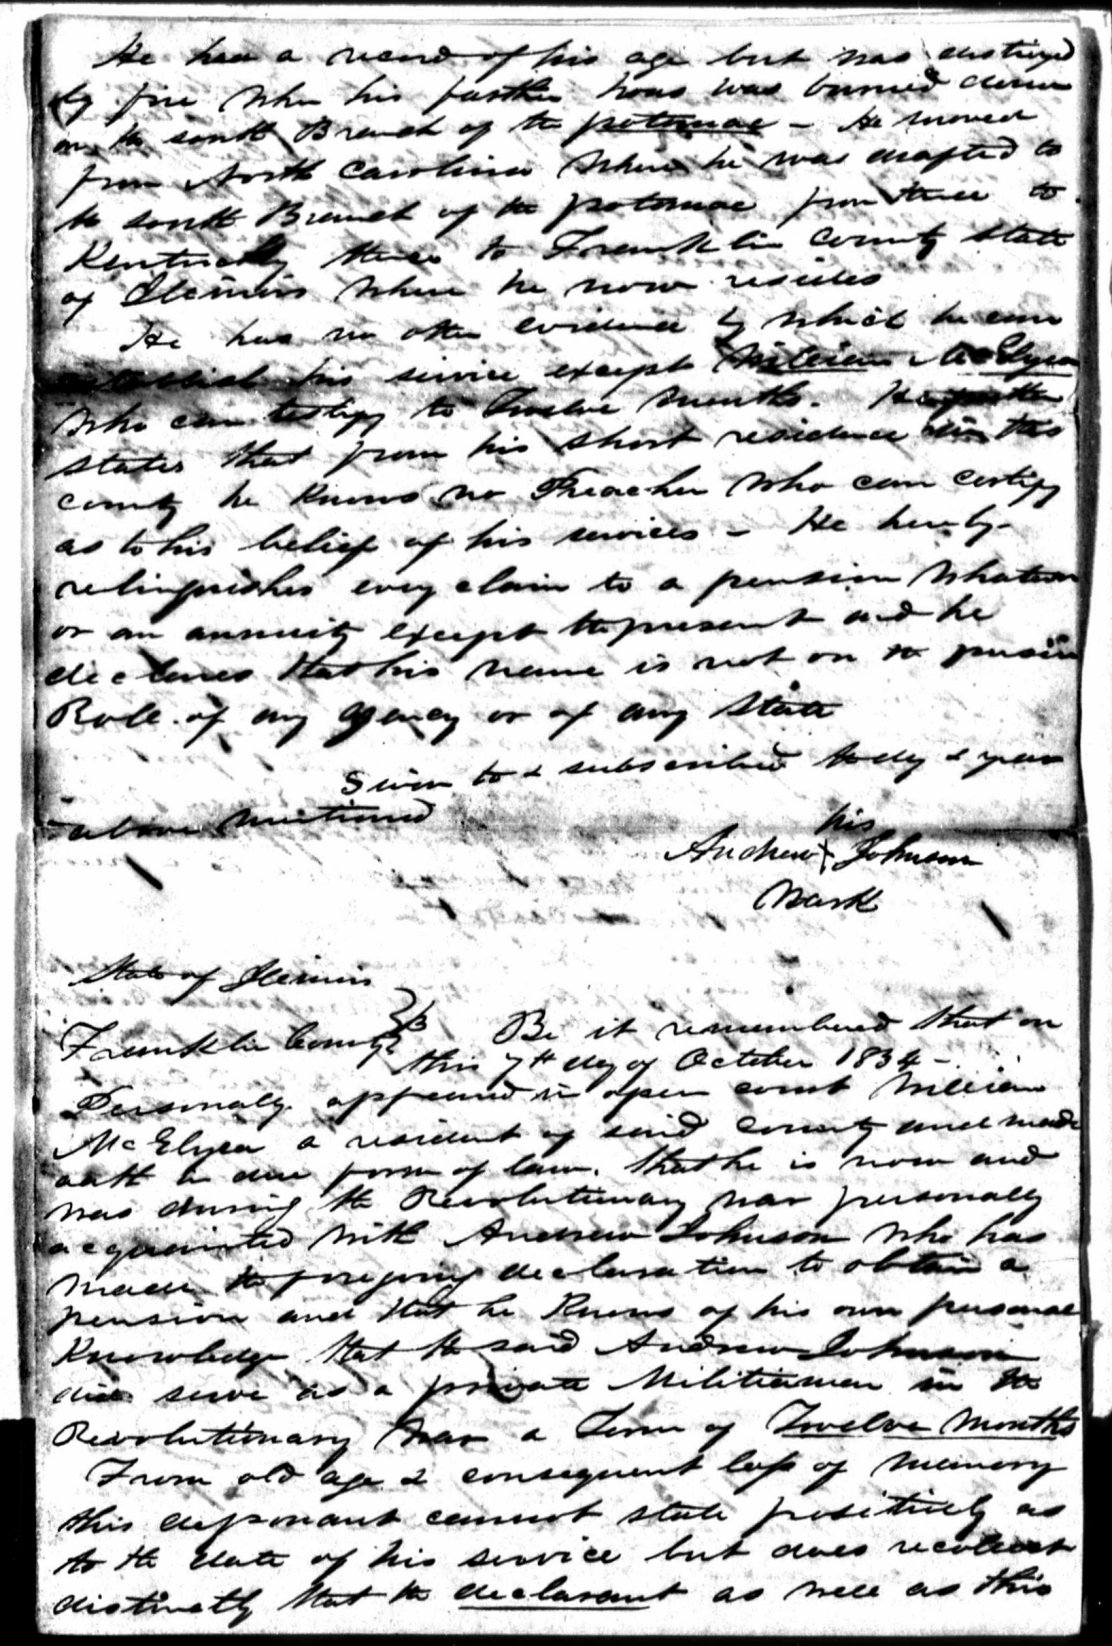 He had a record of his age but was destroyed
by fire when his farther hous was burned down
on the south Branch of the potomac - He moved
from North Carolina where he was drafted to
the south Branch of the potomac from thence to
Kentucky thence to Franklin County state
of Illinois where he now resides
He has no other evidence by which he can
establish his service except William McElyea
who can testify to Twelve Months. He further
states that from his short residence in this
county he knows no Preacher who can certify
as to his belief of his services - He hereby
relinquishes every claim to a pension whatever
or an annuity except the present and he
declares that his name is not on the pension
Role of any agency or of any state
Sworn to & subscribed the day & year
above mentioned
his
Andrew X Johnson
mark
State of Illinois
Franklin County } Be it remembered that on
this 7th day of October 1834 -
Personally appeared in open court William
McElyea a resident of said County and made
oath in due form of law. that he is now and
was during the Revolutionary war personally
acquainted with Andrew Johnson who has
made the foregoing declaration to obtain a
pension and that he knows of his own personal
Knowledge that the said Andrew Johnson
did serve as a private Militiaman in the
Revolutionary war a Term of Twelve Months
From old age & consequent loss of memory
this deponant cannot state positively as
to the date of his service but does recollect
distinctly that the declarant as well as this